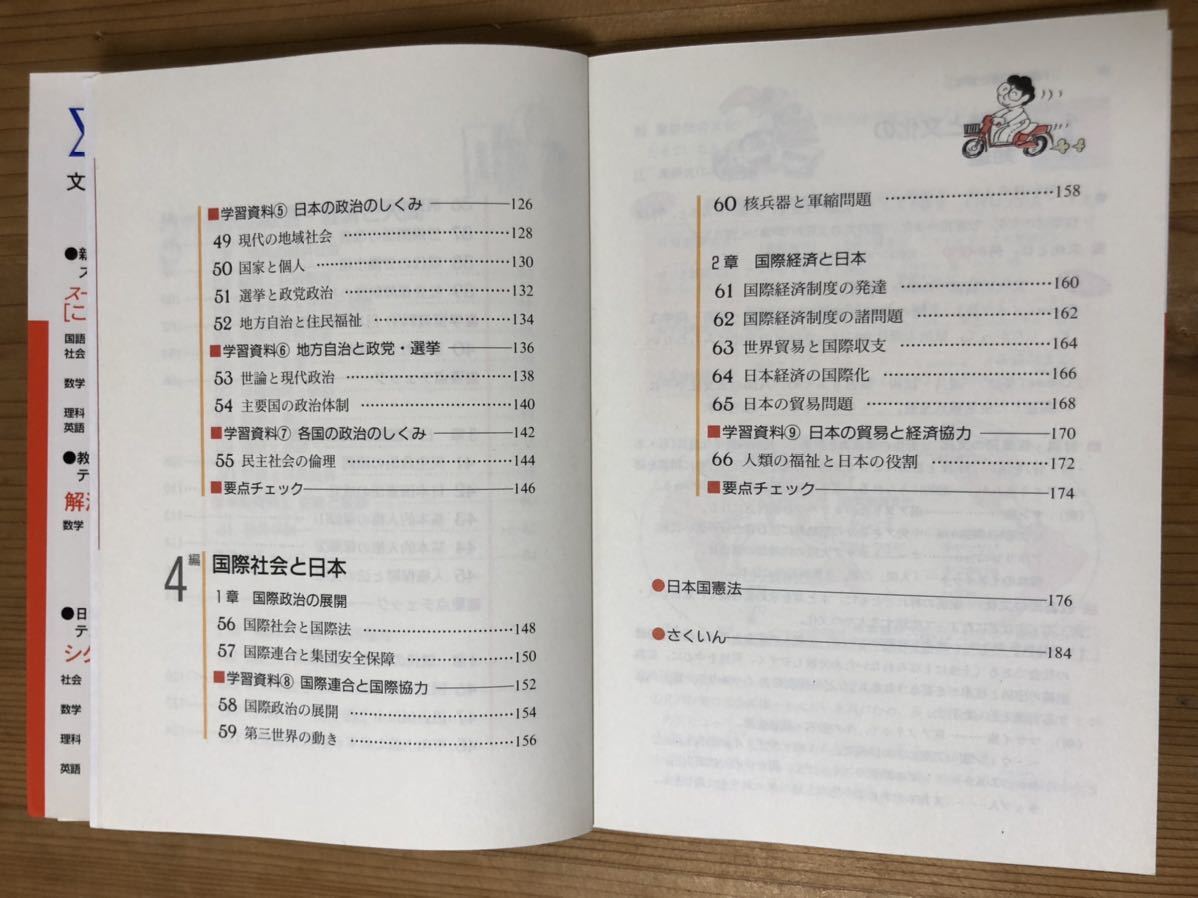 文
国語
社会
数学
理科
英語
数学
社会
数学
理科
英語
■学習資料⑤ 日本の政治のしくみ――126
49 現代の地域社会……128
50 国家と個人……130
51 選挙と政党政治……132
52 地方自治と住民福祉……134
■学習資料⑥ 地方自治と政党・選挙――136
53 世論と現代政治……138
54 主要国の政治体制……140
■学習資料⑦ 各国の政治のしくみ――142
55 民主社会の倫理……144
■要点チェック――146
4編 国際社会と日本
1章 国際政治の展開
56 国際社会と国際法……148
57 国際連合と集団安全保障……150
■学習資料⑧ 国際連合と国際協力――152
58 国際政治の展開……154
59 第三世界の動き……156
60 核兵器と軍縮問題……158
2章 国際経済と日本
61 国際経済制度の発達……160
62 国際経済制度の諸問題……162
63 世界貿易と国際収支……164
64 日本経済の国際化……166
65 日本の貿易問題……168
■学習資料⑨ 日本の貿易と経済協力――170
66 人類の福祉と日本の役割……172
■要点チェック――174
●日本国憲法――176
●さくいん――184